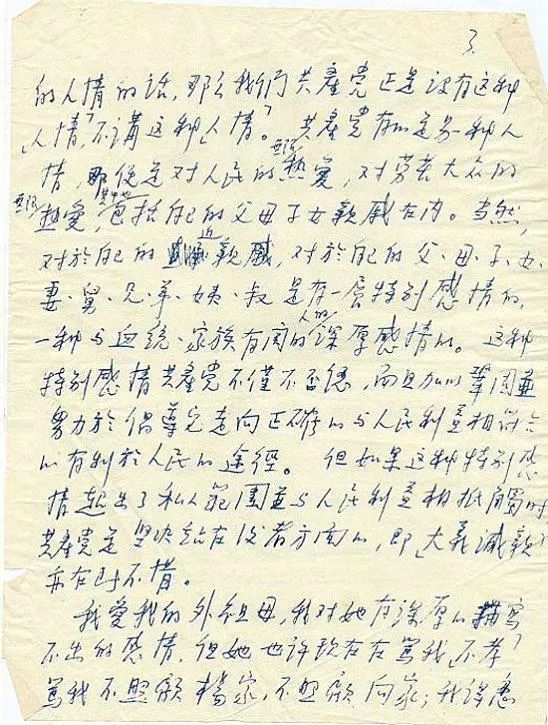 3.
的人情的话,那么我们共產党正是没有这种
「人情」,不講这种「人情」。共產党有的是另一种人
情,那便是对人民的無限热爱,对劳苦大众的
無限热爱,其中也包括自己的父母子女親戚在内。当然,
对於自己的近親,对於自己的父、母、子、女、
妻、舅、兄、弟、姨、叔是有一層特别感情的,
一种与血统、家族有関的人的深厚感情的。这种
特别感情共產党不僅不否認,而且加以鞏固並
努力於倡導它走向正確的与人民利益相符合
的有利於人民的途徑。但如果这种特别感
情超出了私人範围並与人民利益相抵觸时
共產党是坚决站在後者方面的,即「大義滅親」
亦在所不惜。
我愛我的外祖母,我对她有深厚的描寫
不出的感情,但她也许现在在罵我「不孝」
罵我不照顧楊家,不照顧向家;我得悉